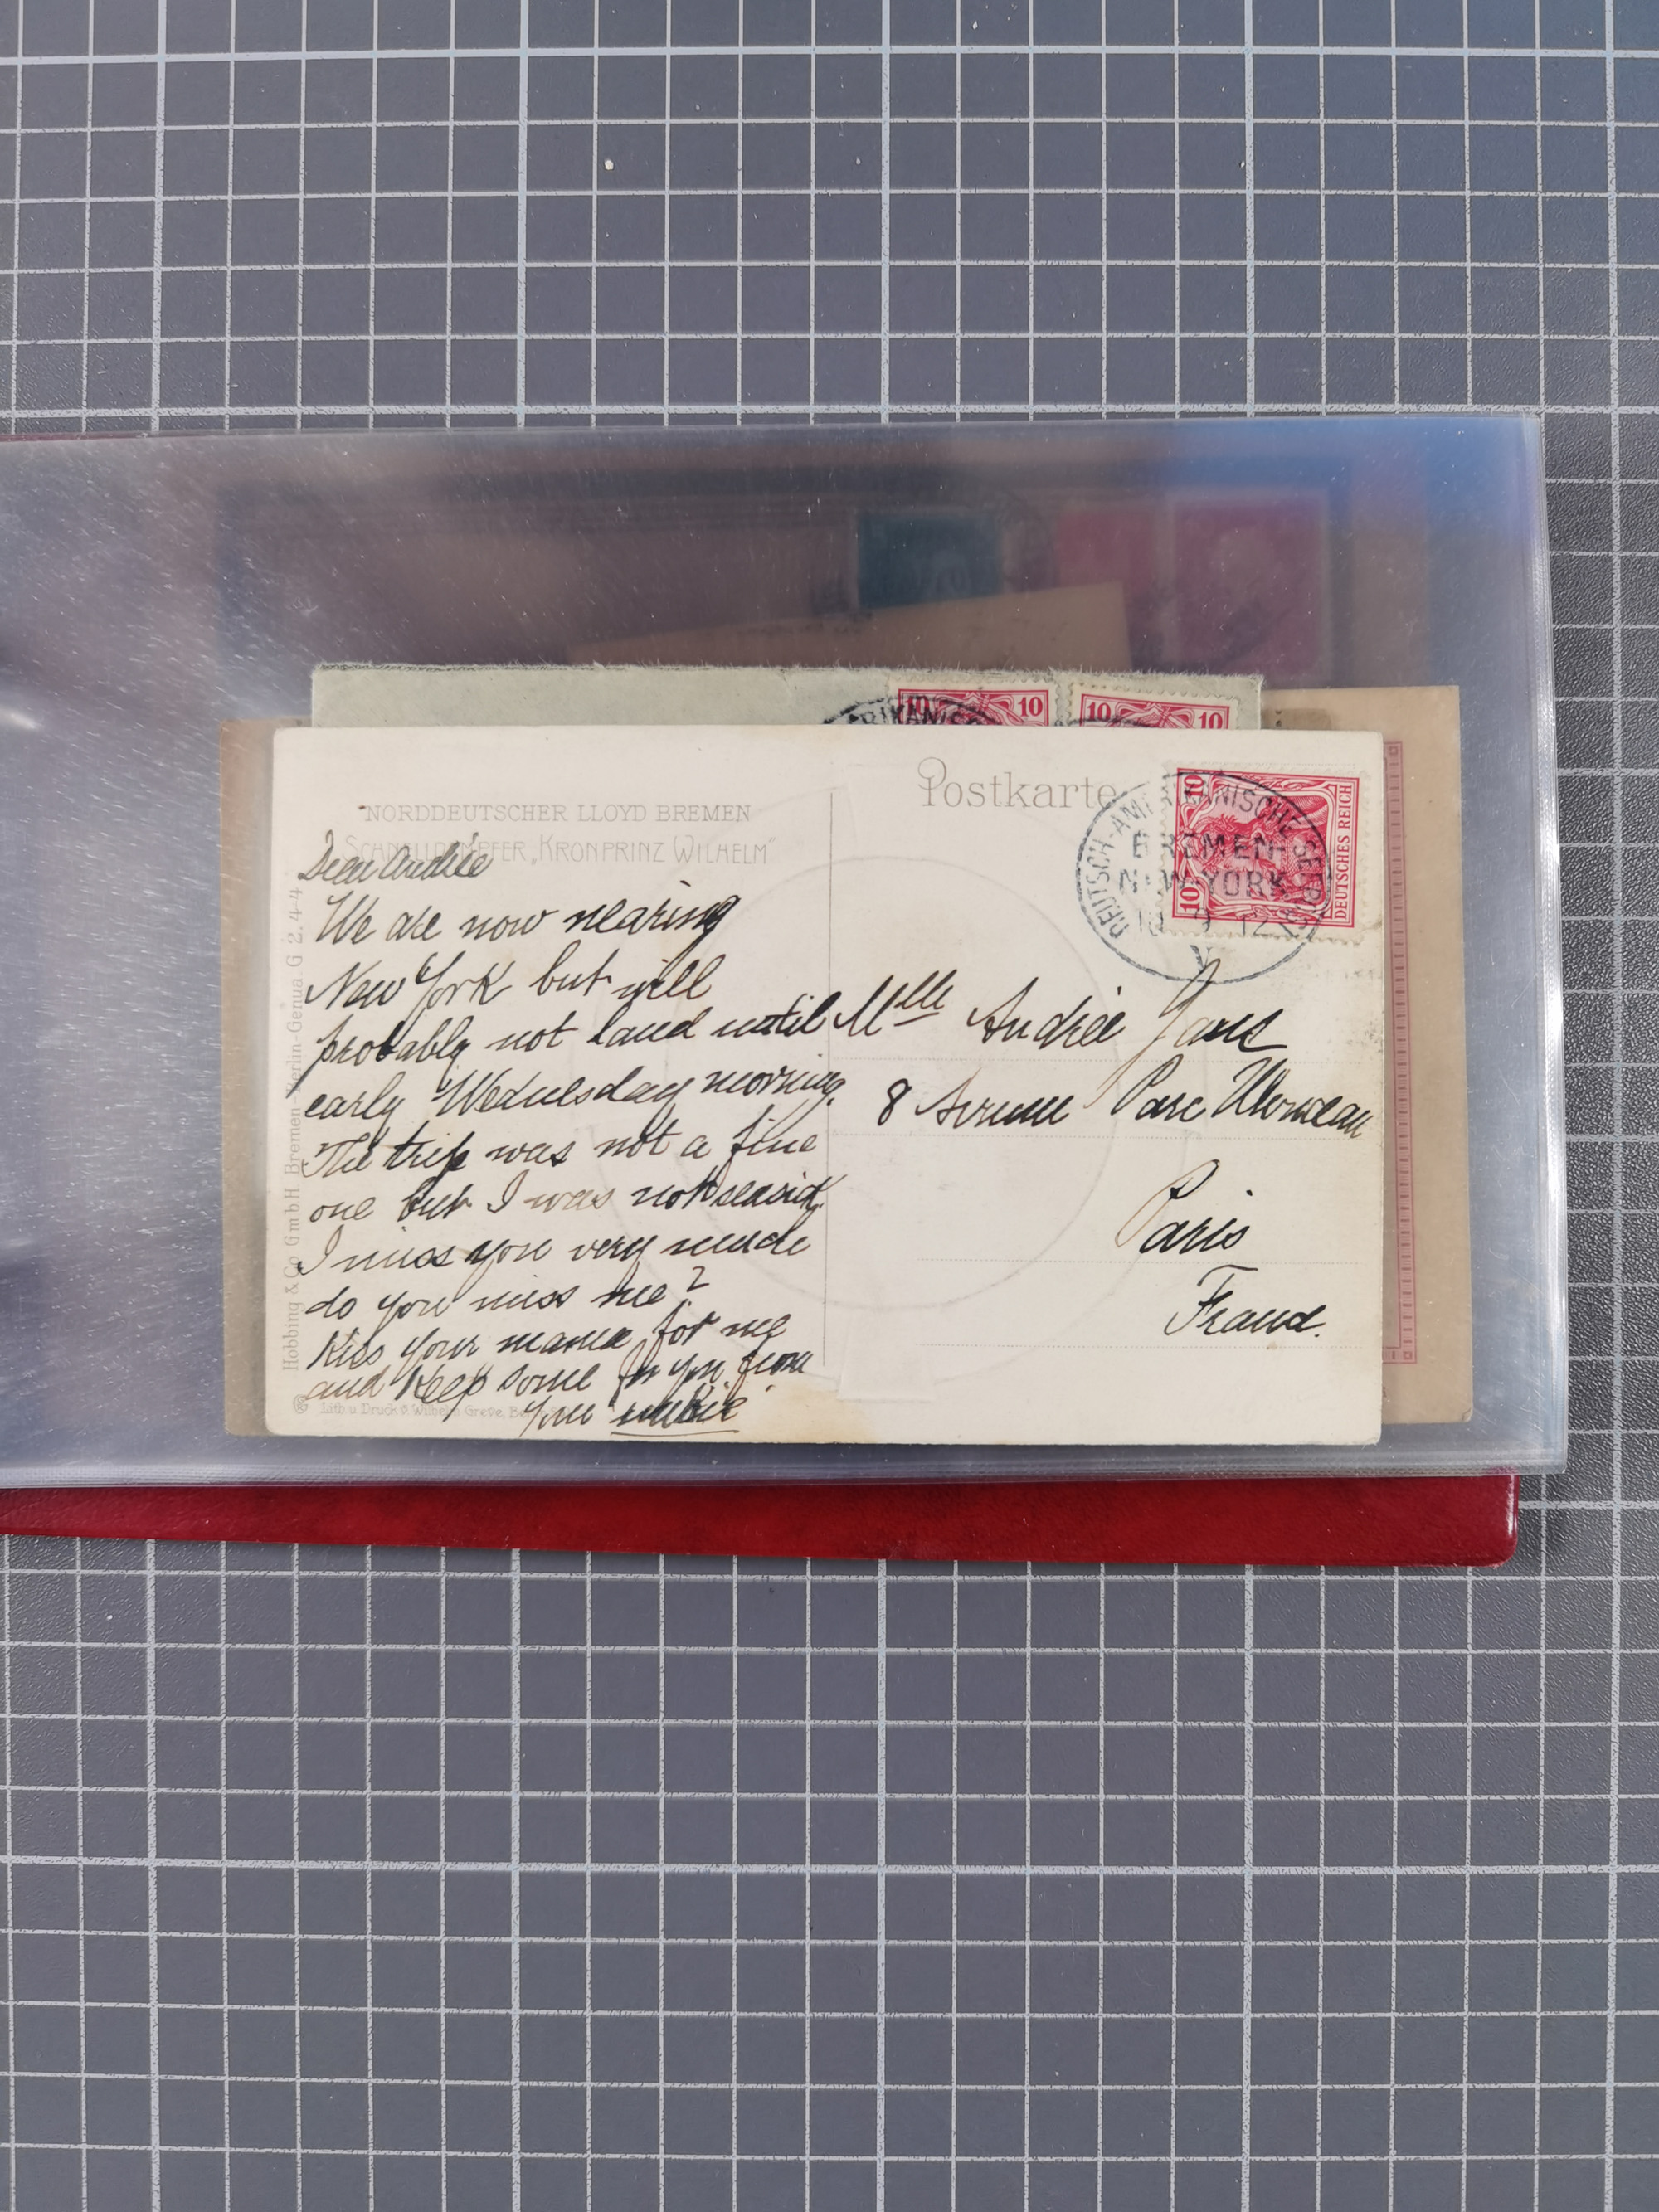 NORDDEUTSCHER LLOYD BREMEN
SCHNELLDAMPFER „KRONPRINZ WILHELM"
Dear Andrée
We are now nearing
New York but will
probably not land until
early Wednesday morning.
The trip was not a fine
one but I was not seasick
I miss you very much
do you miss me?
Kiss your mama for me
and keep some for you from
Your
Lith u Druck v. Wilhelm Greve,
Hobbing & Co GmbH Bremen-Berlin-Genua. G 2.44
Postkarte
DEUTSCH-AMERIKANISCHE SEEPOST
BREMEN-
NEW-YORK
10 9 12
10
10
DEUTSCHES REICH
Mlle Andrée
8 Avenue Parc
Paris
France.
RIKANISC
10 10
10 10